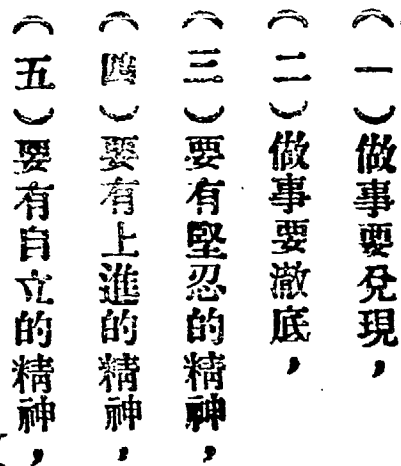 （一）做事要兌現，
（二）做事要澈底，
（三）要有堅忍的精神，
（四）要有上進的精神，
（五）要有自立的精神，